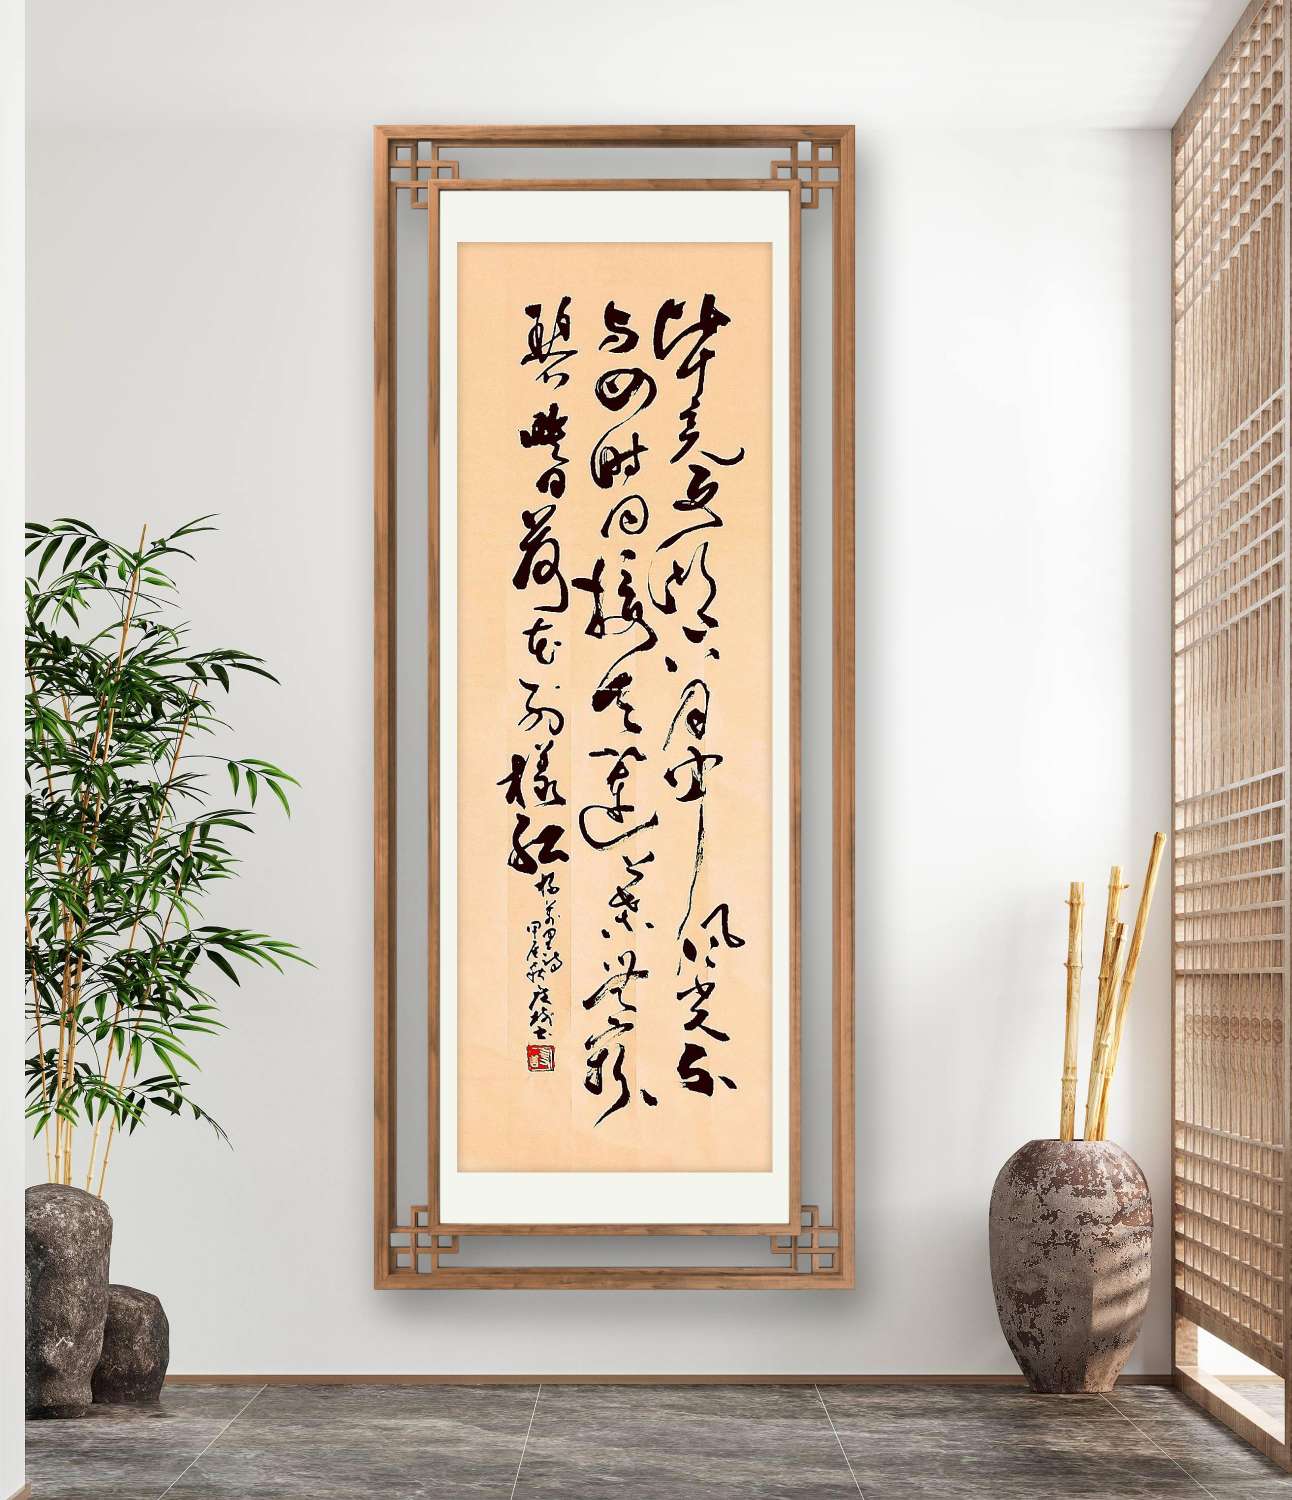 毕竟西湖六月中风光不
与四时同接天莲叶無穷
碧映日荷花别樣红
杨万里诗
甲辰秋
书